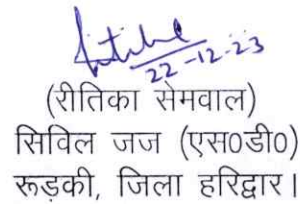 22-12-23
(रीतिका सेमवाल)
सिविल जज (एस0डी0)
रूड़की, जिला हरिद्वार।